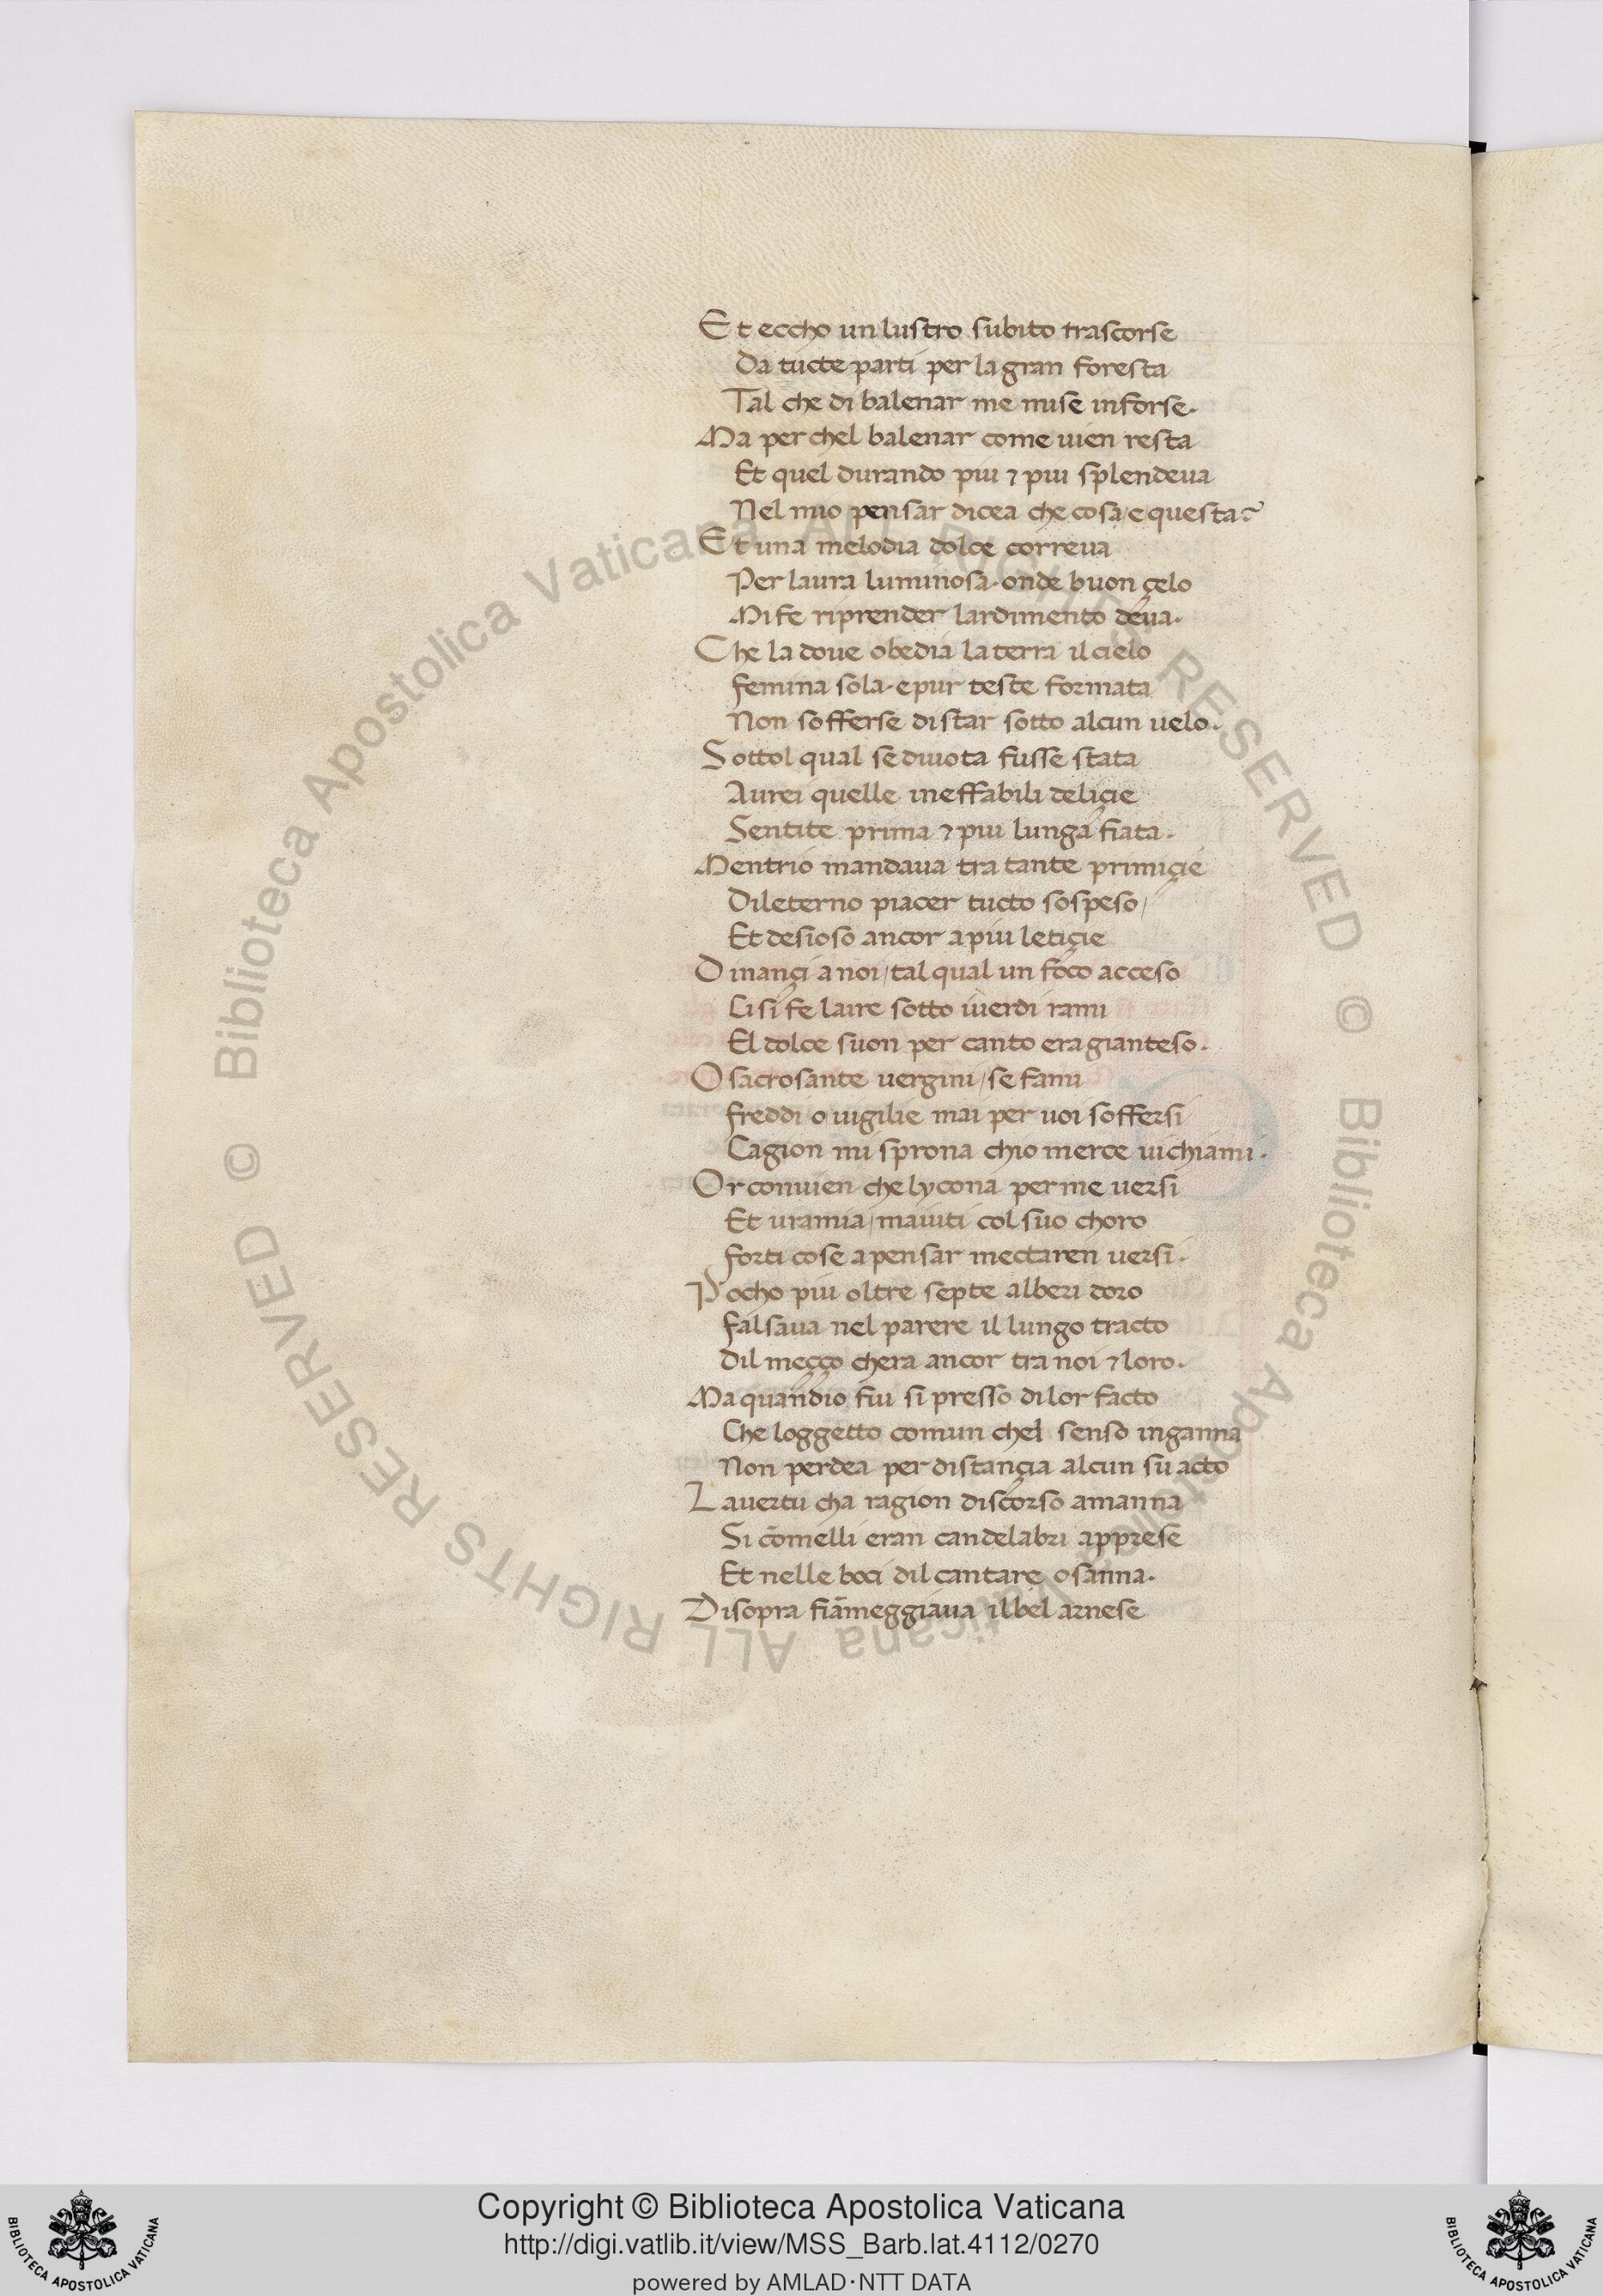 Et eccho un lustro subito trascorse
Da tucte parti per la gran foresta
Tal che di balenar me mise inforse.
Ma per chel balenar come uien resta
Et quel durando piu ⁊ piu splendeua
Nel mio pensar dicea che cosa/e questa?
Et una melodia dolce correua
Per laura luminosa. onde buon çelo
Mi fe riprender lardimento deua.
Che la doue obedia la terra il cielo
femina sola. e pur teste formata
Non sofferse di star sotto alcun uelo.
Sottol qual se diuota fusse stata
Aurei quelle ineffabili deliçie
Sentite prima ⁊ piu lunga fiata.
Mentrio mandaua tra tante primiçie
Dileterno piacer tucto sospeso/
Et desioso ancor a piu letiçie
Dinançi a noi/tal qual un foco acceso
Li si fe laire sotto iuerdi rami
El dolce suon per canto era gianteso.
O sacrosante uergini/se fami
freddi o uigilie mai per uoi soffersi
Cagion mi sprona chio merce ui chiami.
Or conuien che lycona per me uersi
Et urania/maiuti col suo choro
forti cose a pensar mectaren uersi.
Pocho piu oltre septe alberi doro
falsaua nel parere il lungo tracto
Dil meçço chera ancor tra noi ⁊ loro.
Ma quandio fui si presso di lor facto
Che loggetto comun chel senso inganna
Non perdea per distançia alcun su acto
La uertu cha ragion discorso amanna
Si cōmelli eran candelabri apprese
Et nelle boci dil cantare osanna.
Disopra fiāmeggiaua il bel arnese
© Biblioteca Apostolica Vaticana ALL RIGHTS RESERVED © Biblioteca Apostolica Vaticana ALL RIGHTS RESERVED
BIBLIOTECA APOSTOLICA VATICANA
Copyright © Biblioteca Apostolica Vaticana
http://digi.vatlib.it/view/MSS_Barb.lat.4112/0270
powered by AMLAD·NTT DATA
BIBLIOTECA APOSTOLICA VATICANA